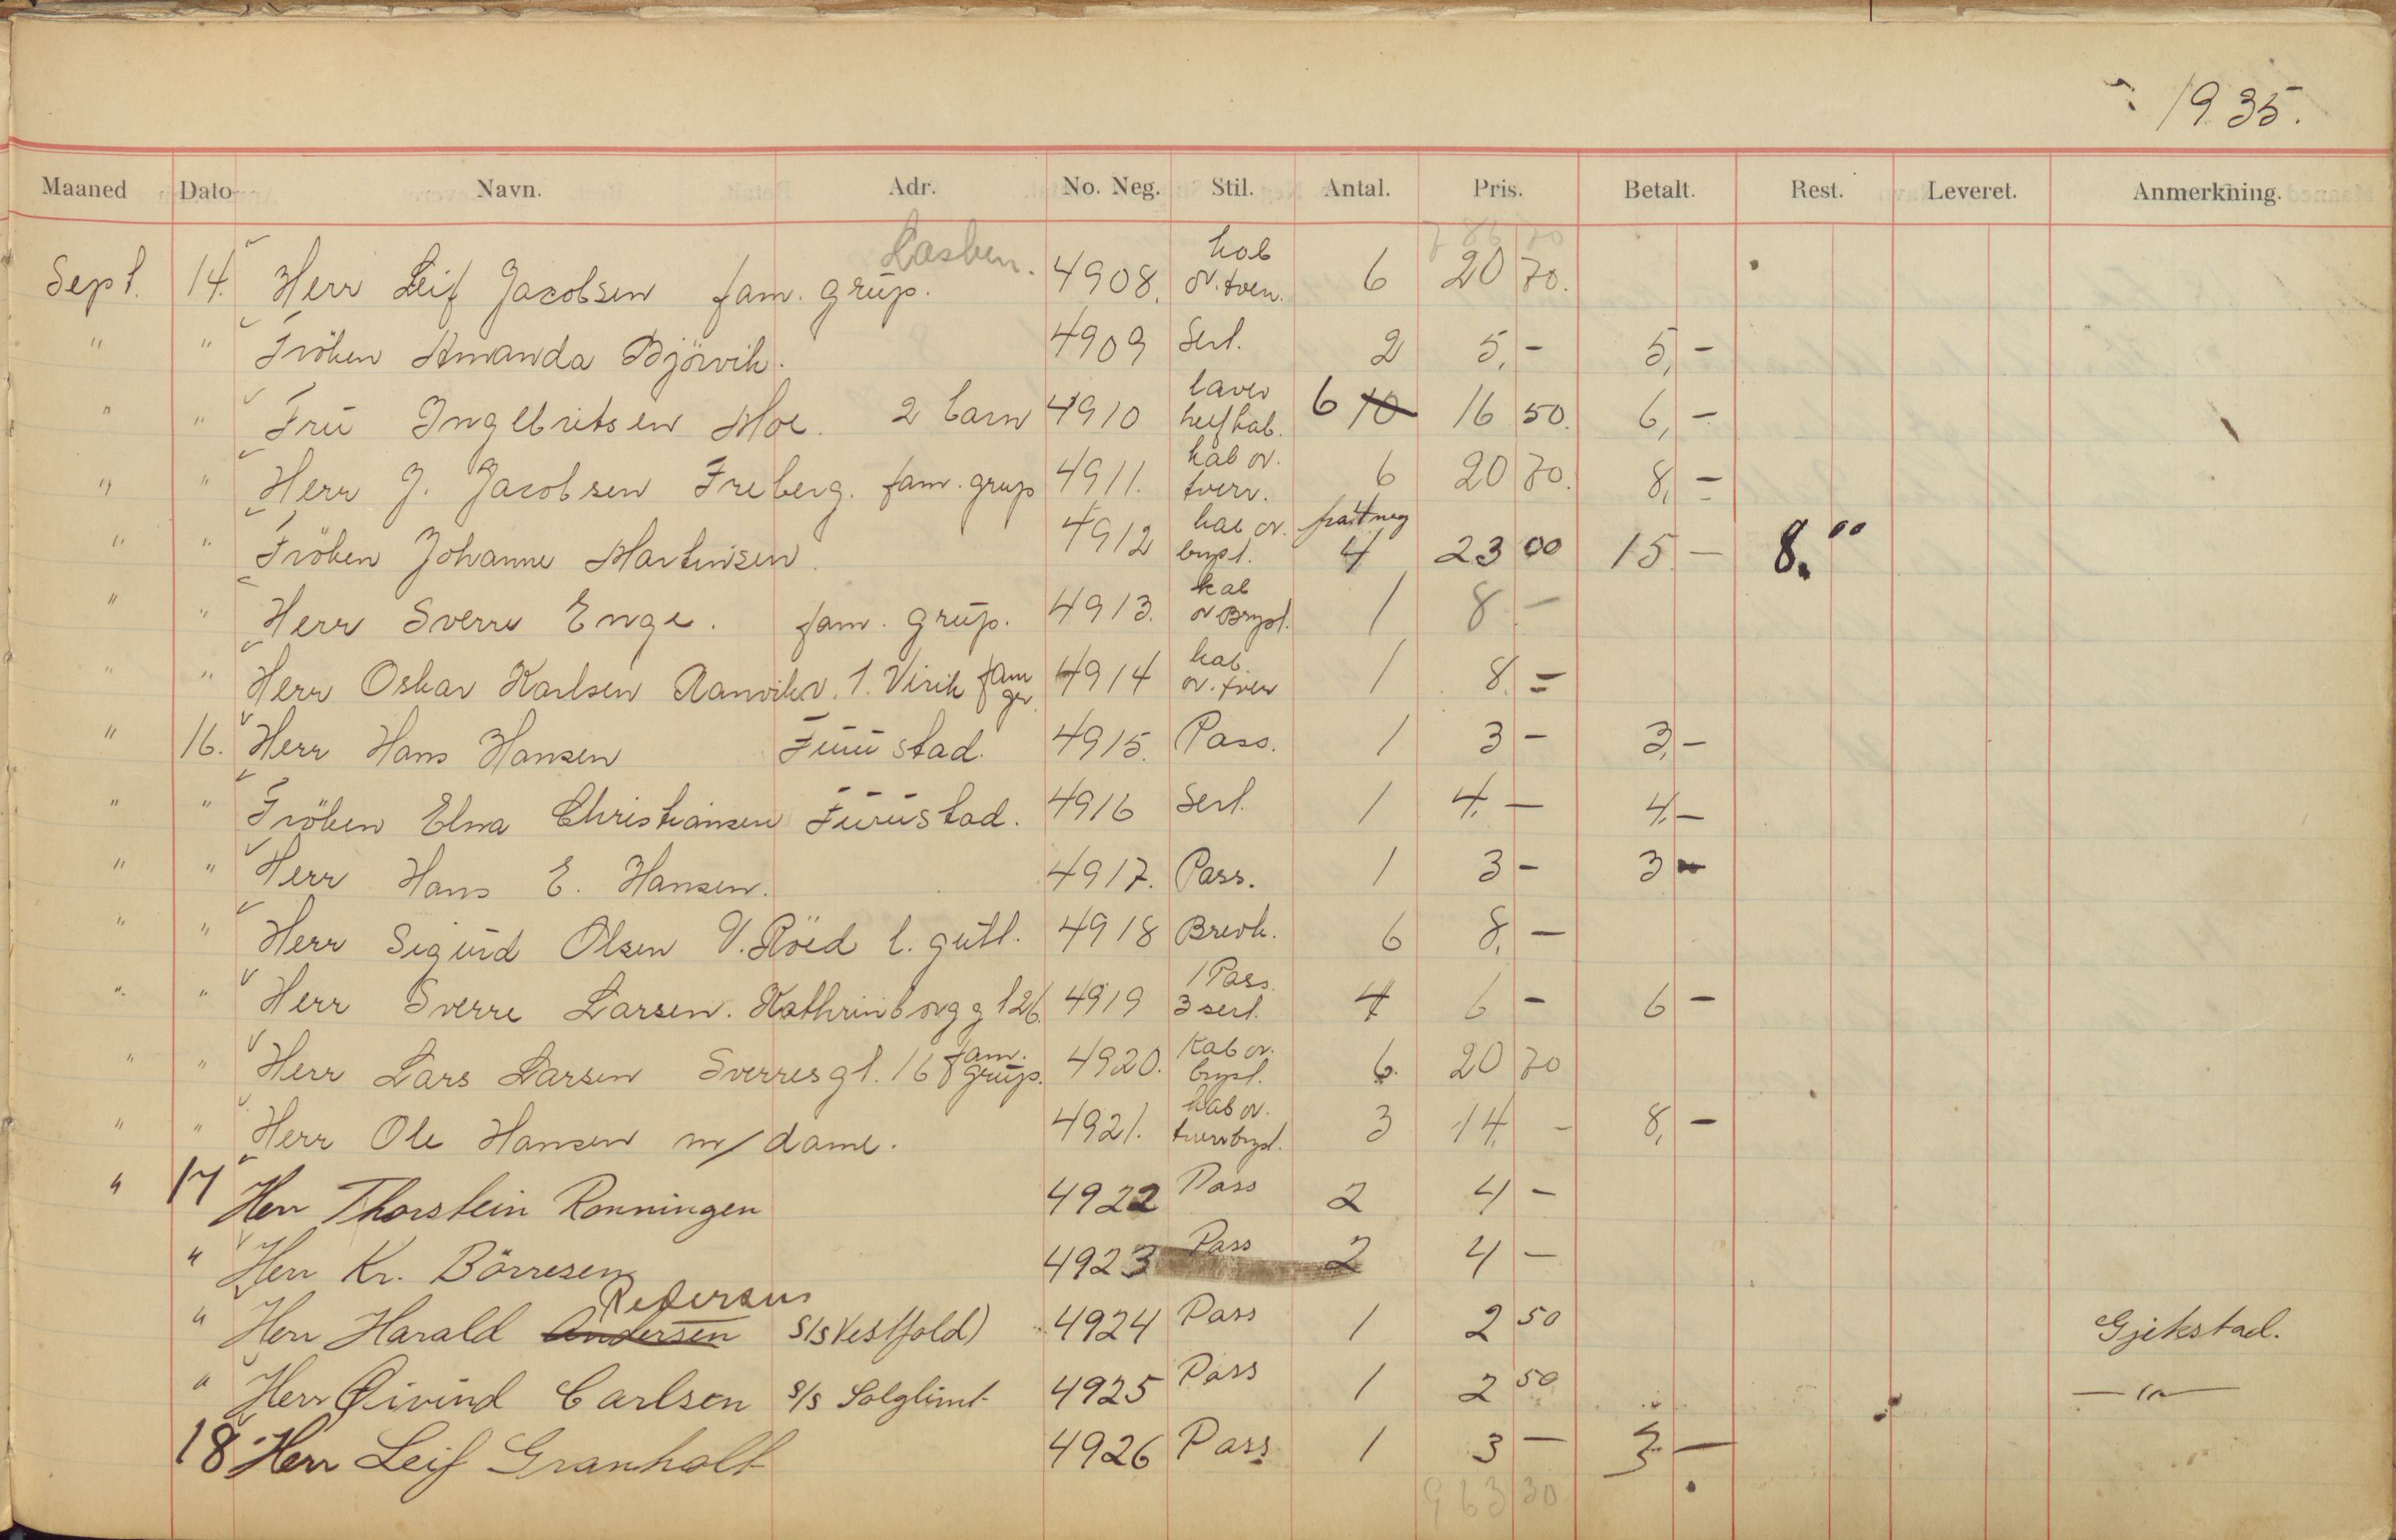 1935.
Maaned Dato Navn. Adr. No. Neg. Stil. Antal. Pris. Betalt. Rest. Leveret. Anmerkning.
Sept. 14. Herr Leif Jacobsen fam. grup. 4908. kab ov. tver. 6 20 70.
" " Fröken Amanda Björvik. 4909 Serl. 2 5,- 5,-
" " Fru Ingebritsen Moe. 2 barn 4910 helf kab. 6 10 16 50. 6,-
" " Herr J. Jacobsen Freberg. fam. grup 4911. kab ov. tverr. 6 20 70. 8,-
" " Fröken Johanne Martinsen. 4912 kab ov. brysl. 4 23 00 15 - 8.00
" " Herr Sverre Enge. fam. grup. 4913. kab ov Brysl. 1 8 -
" " Herr Oskar Karlsen Ranvikv. 1. Virik fam gr. 4914 kab. ov. tver 1 8. =
" 16. Herr Hans Hansen Furustad. 4915. Pass. 1 3 - 3,-
" " Fröken Elna Christiansen Furustad. 4916 Serl. 1 4. - 4.-
" " Herr Hans E. Hansen. 4917. Pass. 1 3 - 3 -
" " Herr Sigurd Olsen V. Röed l. gutt. 4918 Brevk. 6 8. -
" " Herr Sverre Larsen. Kathrinborgg 126. 4919 1 Pass. 3 serl. 4 6 - 6 -
" " Herr Lars Larsen Sverresgt. 16 fam. grup. 4920. Kab ov. brysl. 6. 20 70
" " Herr Ole Hansen m/dame. 4921. kab ov. tverrbrysl. 3 14, - 8, -
" 17 Herr Thorstein Ronningen 4922 Pass 2 4 -
" Herr Kr. Börresen 4923 Pass 2 4 -
" Herr Harald Andersen Pedersen S/s Vestfold) 4924 Pass 1 2 50 Gjekstad.
" Herr Øivind Carlsen S/s Solglimt 4925 Pass 1 2 50 — " —
18 Herr Leif Granholt 4926 Pass 1 3 - 3 -
963 30